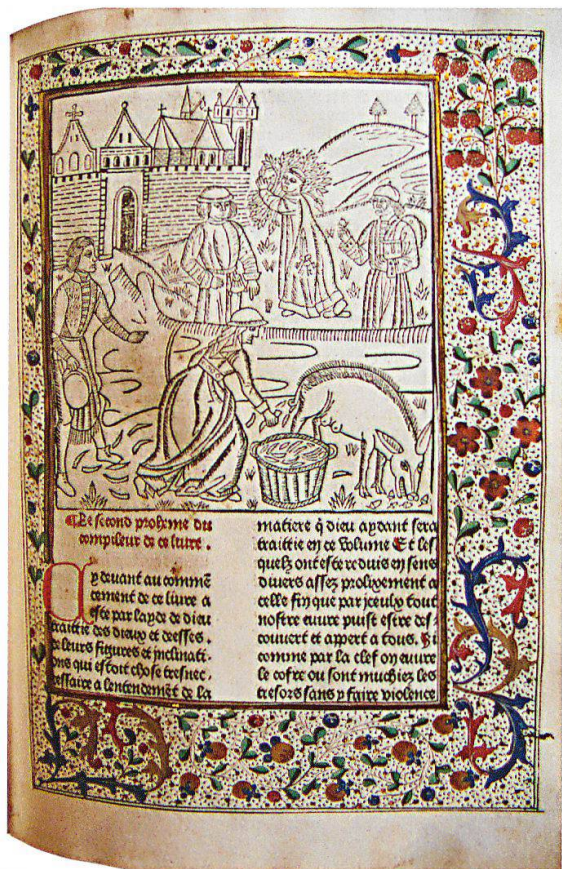 Le second prologue du
compileur de ce liure .
Cy deuant au commē
cement de ce liure a
este par layde de dieu
traittie des dieux et deesses .
de leurs figures et inclinati
ons qui estoit chose tresnec .
essaire a lentendemēt de la
matiere q̄ dieu aydant sera
traittie en ce volume Et les
quelz ont este reduis en sens
diuers assez prolixement a
celle fin que par iceulx tout
nostre euure puist estre des
couuert et appert a tous . Si
comme par la clef on euure
le cofre ou sont muchiez les
tresors sans y faire violence